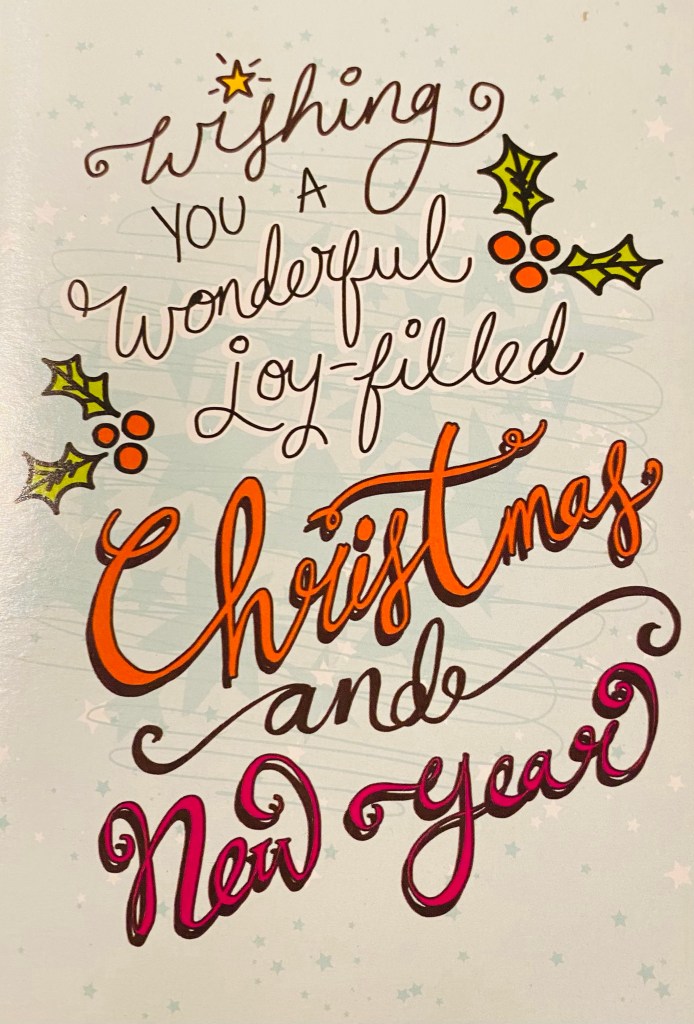 wishing
YOU A
wonderful
joy-filled
Christmas
and
New Year